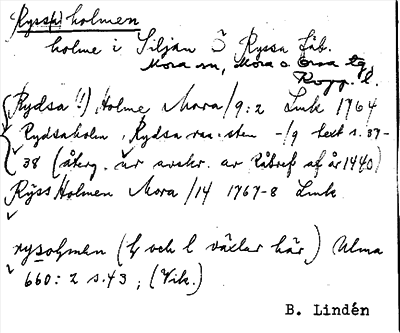 Ryss(h)holmen
holme i Siljan Ö Ryssa fäb.
Mora sn, Mora o Orsa tg,
Kopp. l.
Rydsa(!) Holme Mora/9:2 Lmk 1764
Rydsaholm, Rydsa -/9 text s.37-
38 (återg. ur avskr. av Råbref af år 1440)
Rÿss Holmen Mora/14 1767-8 Lmk
rysoɫmen (ɫ och l växlar här) Ulma
660:2 s.43; (Vik.)
B. Lindén